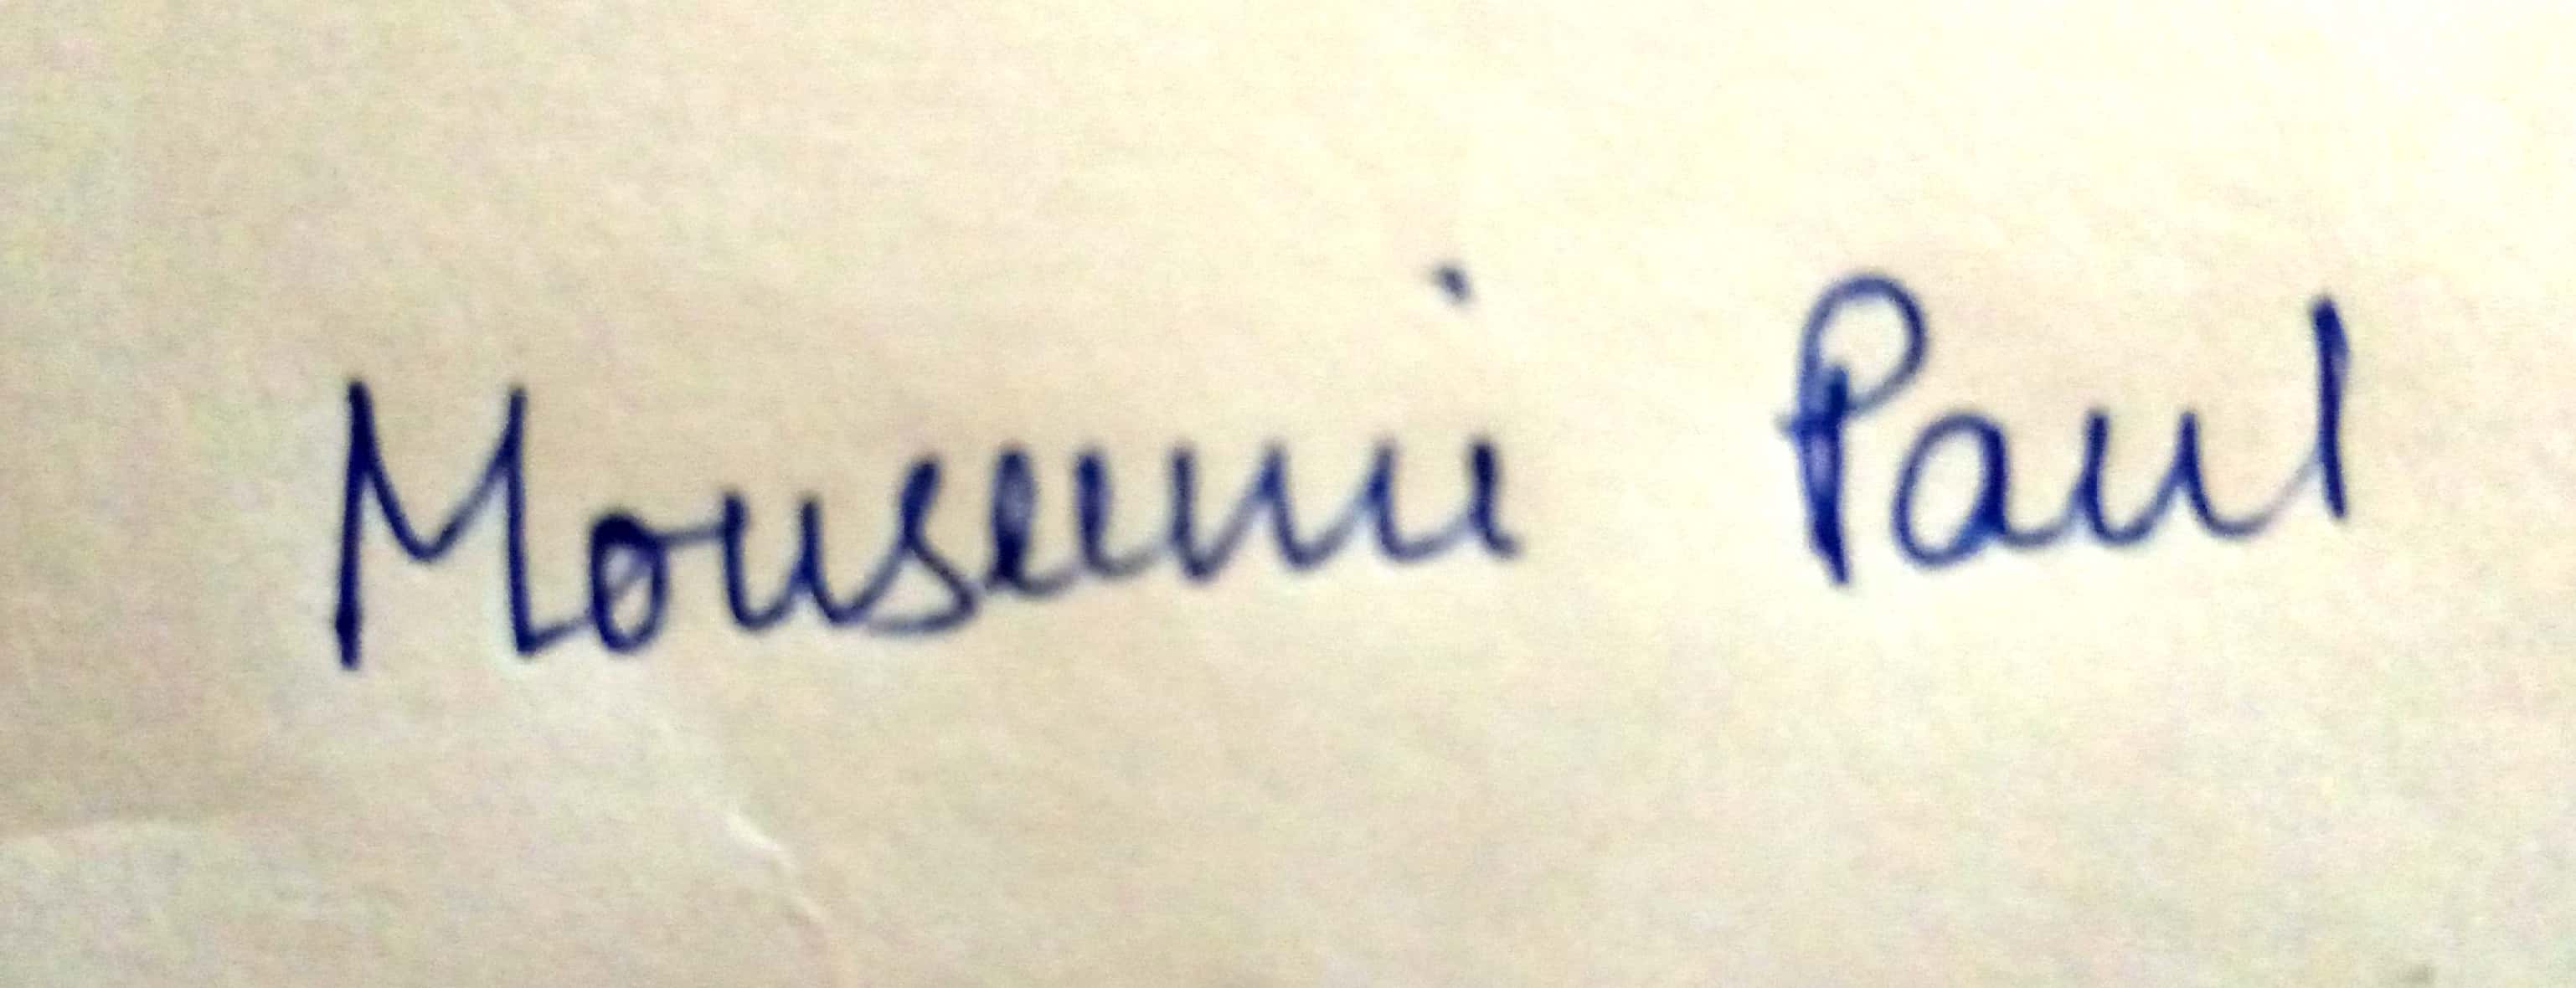 Mousumi Paul